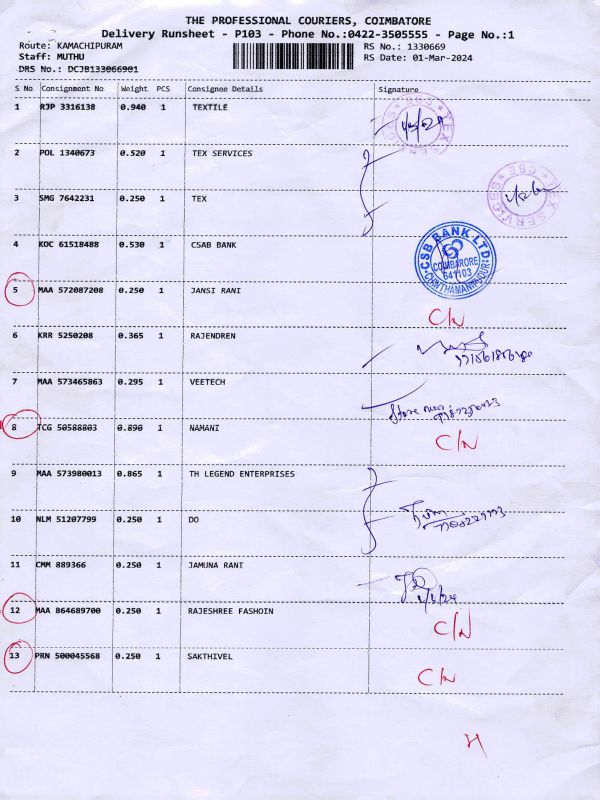 THE PROFESSIONAL COURIERS, COIMBATORE
Delivery Runsheet - P103 - Phone No.:0422-3505555 - Page No.:1
Route: KAMACHIPURAM RS No.: 1330669
Staff: MUTHU RS Date: 01-Mar-2024
DRS No.: DCJB133066901
S No Consignment No Weight PCS Consignee Details Signature
1 RJP 3316138 0.940 1 TEXTILE
2 POL 1340673 0.520 1 TEX SERVICES
3 SMG 7642231 0.250 1 TEX
TEX SERVICES CBE
4 KOC 61518488 0.530 1 CSAB BANK
CSB BANK LTD
641103
5 MAA 572087208 0.250 1 JANSI RANI
C/N
6 KRR 5250208 0.365 1 RAJENDREN
7 MAA 573465863 0.295 1 VEETECH
8 TCG 50588803 0.890 1 NAMANI
C/N
9 MAA 573980013 0.865 1 TH LEGEND ENTERPRISES
10 NLM 51207799 0.250 1 DO
11 CMM 889366 0.250 1 JAMUNA RANI
12 MAA 864689700 0.250 1 RAJESHREE FASHOIN
C/N
13 PRN 500045568 0.250 1 SAKTHIVEL
C/N